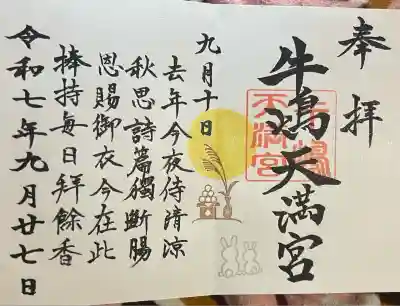 奉拝
牛嶋天満宮
九月十日
去年今夜侍清涼
秋思詩篇獨斷腸
恩賜御衣今在此
捧持毎日拜餘香
令和七年九月廿七日